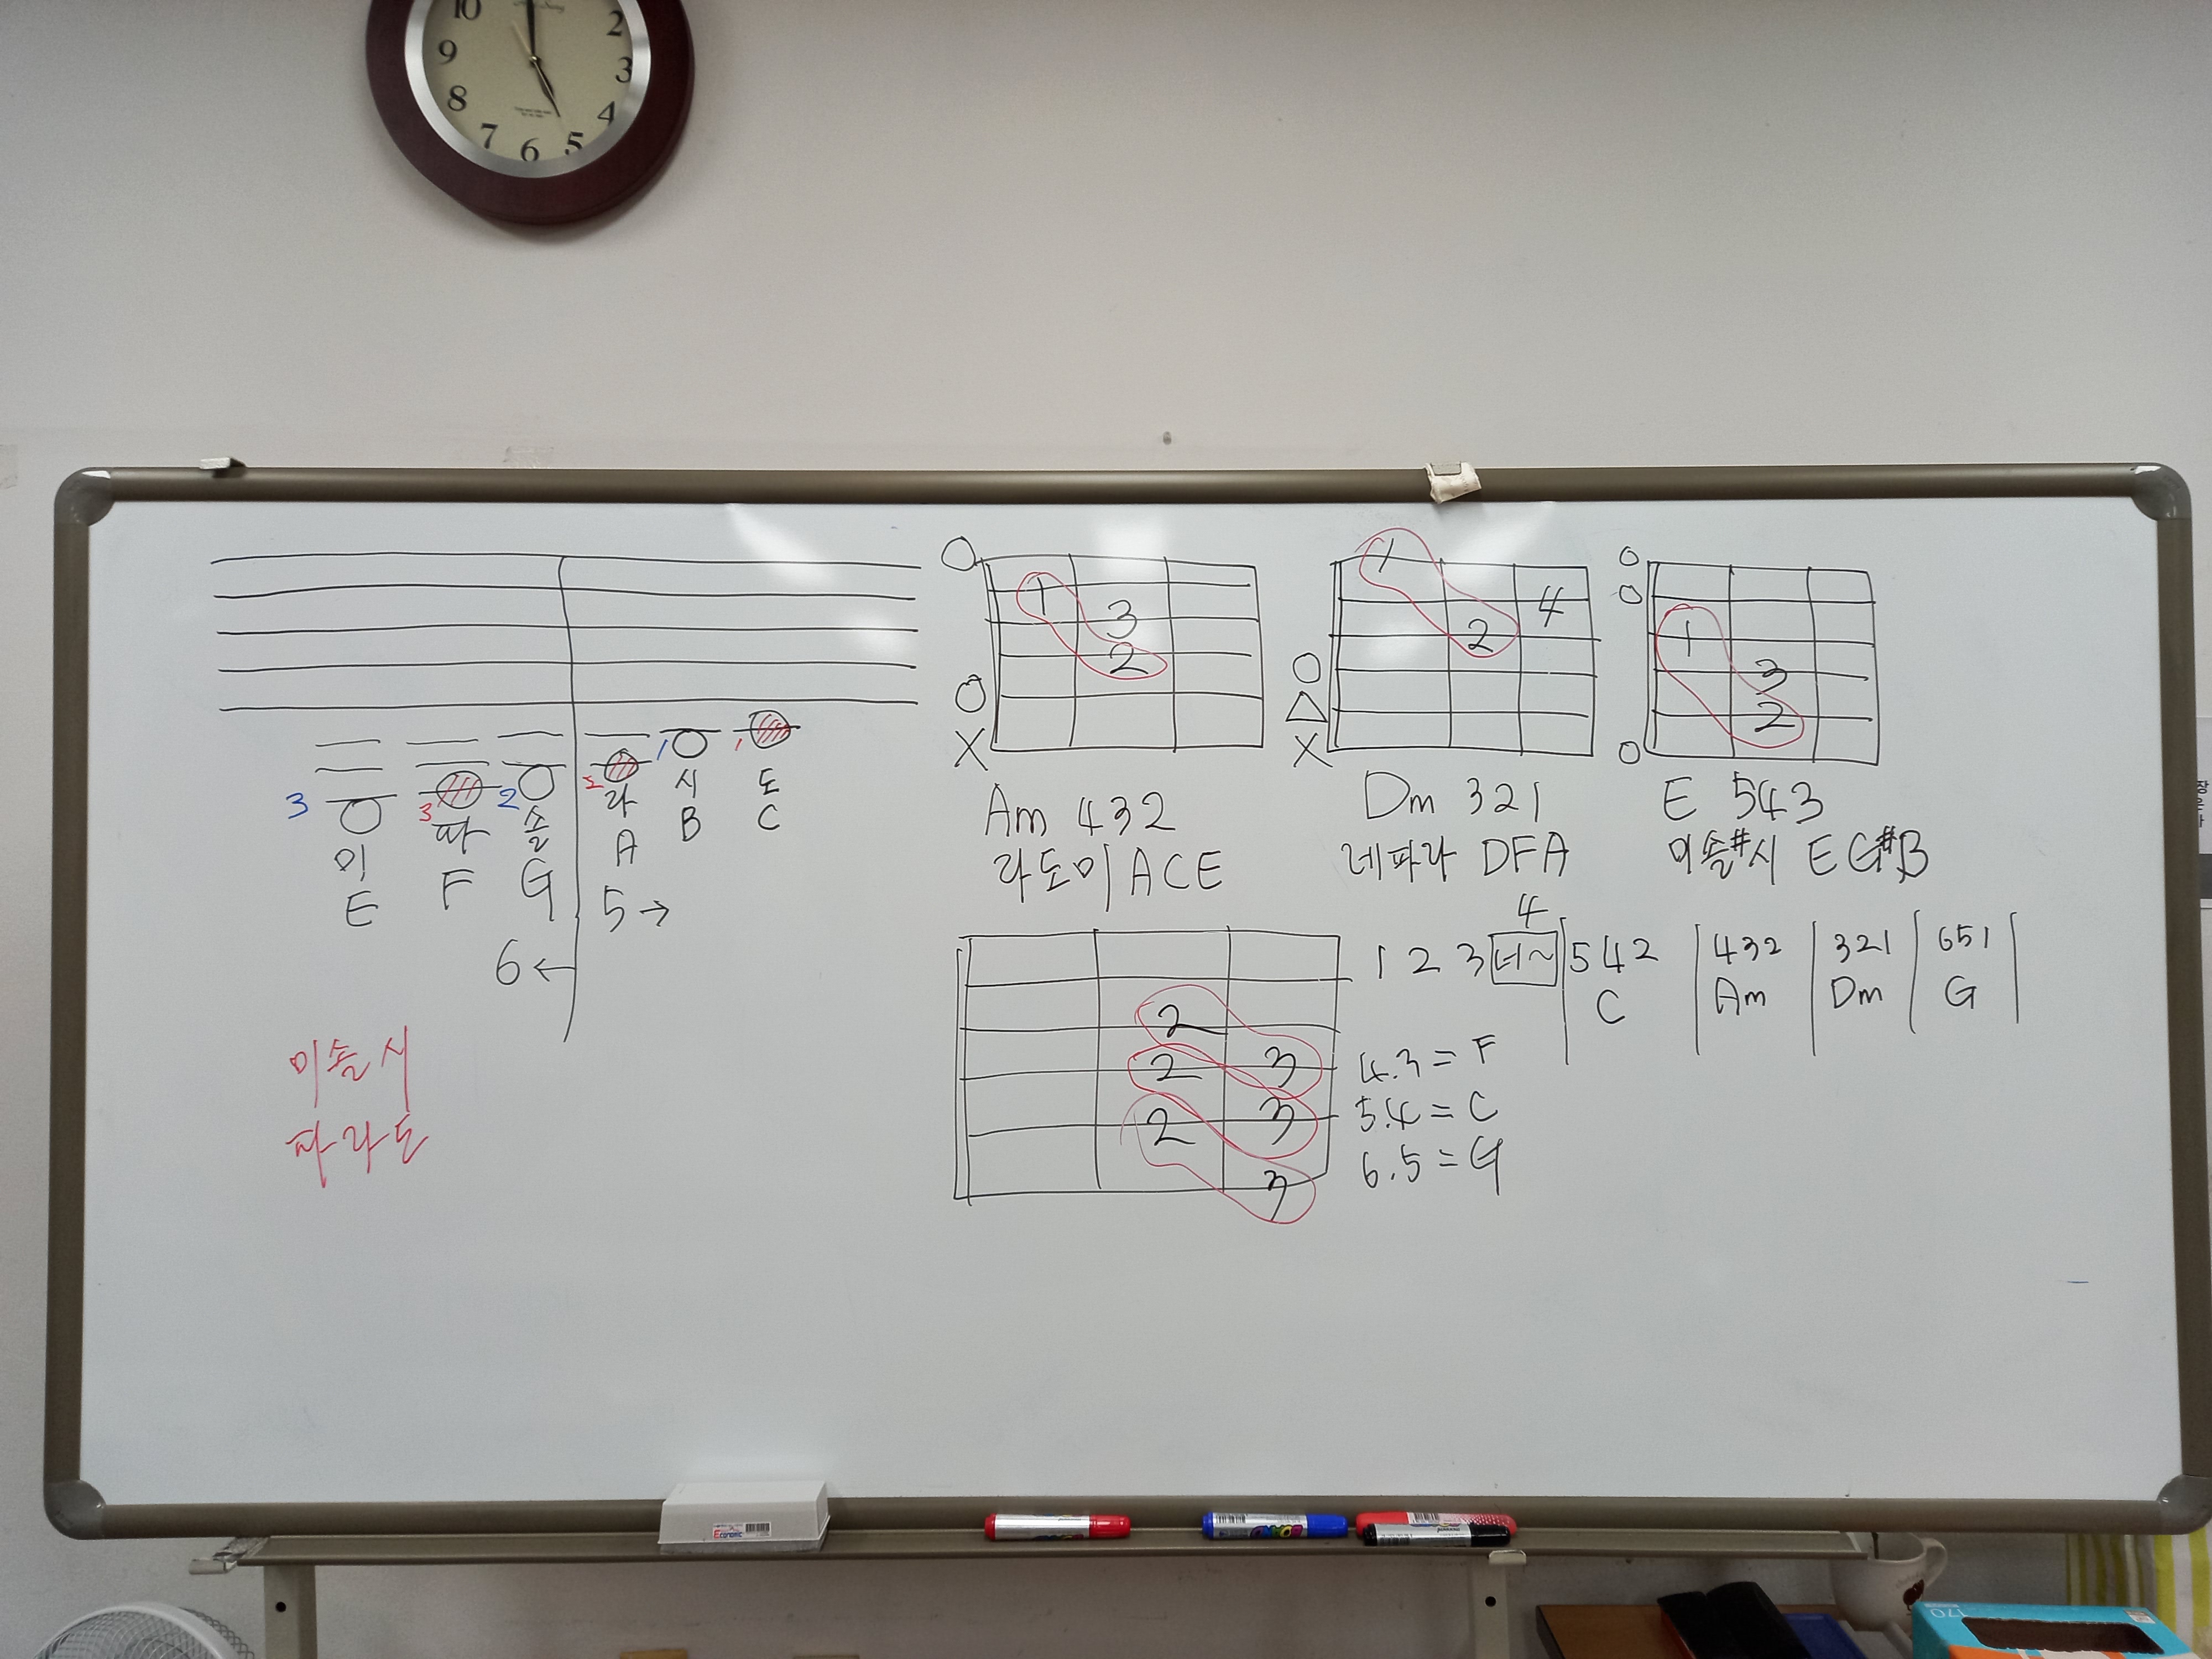 10 2
9 3
8 4
7 6 5
○ 1 3 2 ○ X
1 4 2 ○ △ X
○ ○ 1 3 2 ○
3 3 2 2 1 1
미 파 솔 라 시 도
E F G A B C
5 →
6 ←
미솔시
파라도
Am 432
라도미 ACE
Dm 321
레파라 DFA
E 543
미솔#시 EG#B
2
2 3
2 3
3
4
1 2 3 네~ | 542 | 432 | 321 | 651 |
C Am Dm G
4.3 = F
5.4 = C
6.5 = G